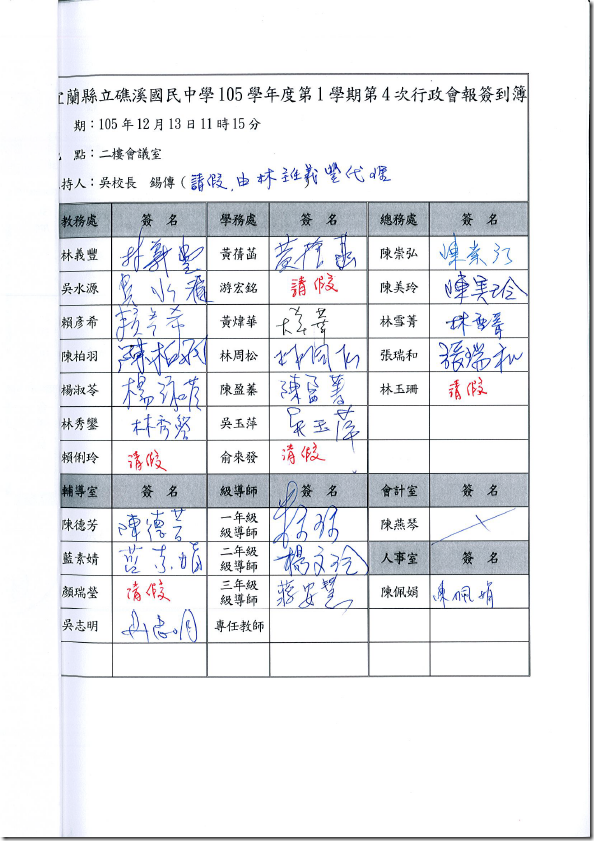 宜蘭縣立礁溪國民中學105學年度第1學期第4次行政會報簽到簿
期：105年12月13日11時15分
點：二樓會議室
持人：吳校長 錫傳（請假，由林主任義豐代理
教務處 簽名 學務處 簽名 總務處 簽名
林義豐 林義豐 黃蒨菡 黃蒨菡 陳崇弘 陳崇弘
吳水源 吳水源 游宏銘 請假 陳美玲 陳美玲
賴彥希 賴彥希 黃煒華 林雪菁 林雪菁
陳柏羽 陳柏羽 林周松 林周松 張瑞和 張瑞和
楊淑苓 楊淑苓 陳盈蓁 陳盈蓁 林玉珊 請假
林秀鑾 林秀鑾 吳玉萍 吳玉萍
賴俐玲 請假 俞來發 請假
輔導室 簽名 級導師 簽名 會計室 簽名
陳德芳 陳德芳 一年級級導師 陳燕琴
藍素婧 藍素婧 二年級級導師 楊文玲 人事室 簽名
顏瑞瑩 請假 三年級級導師 蔣安慧 陳佩娟 陳佩娟
吳志明 吳志明 專任教師